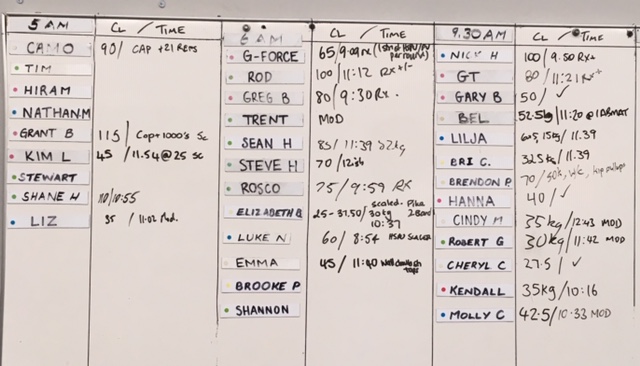 5 AM CL / TIME
CAMO 90/ CAP +21 Reps
TIM
HIRAM
NATHAN.M
GRANT B 115/ Cap+1000's Sc
KIM L 45 /11.54@25 sc
STEWART
SHANE H 110/10:55
LIZ 35 /11:02
6 AM CL / TIME
G-FORCE 65/9:09
ROD 100/11:12 RX+/-
GREG B 80/9:30Rx.
TRENT MOD
SEAN H 85/ 11:39
STEVE H 70
ROSCO 75/9:59 RX
scaled. Pike
ELIZABETH B 25-37.50/30kg 2 Band
10:37
LUKE N 60/ 8:54 HSPU
EMMA 45/ 11:40
BROOKE P
SHANNON
9.30AM CL / TIME
NICK H 100/9:50 RX+
GT 80/11:21
GARY B 50/ ✓
BEL 52.5kg/11:20 @1ABMAT
LILJA 15kg/11.39
BRI C. 32.5kg/11.39
BRENDON P 70/
HANNA 40/✓
CINDY M 35kg/12:43 MOD
ROBERT G 30kg/11:42 MOD
CHERYL C 27.5/ ✓
KENDALL 35kg/10:16
MOLLY C 42.5/10:33 MOD